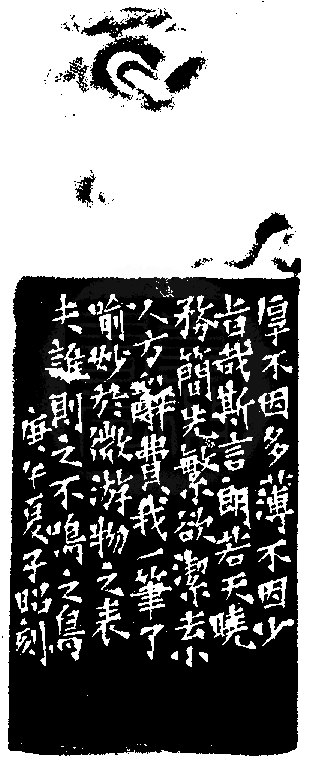 厚不因多薄不因少
旨哉斯言朗若天曉
務簡先繁欲潔去小
人方辭費我一筆了
喻妙於微游物之表
夫誰則之不鳴之鳥
庚午夏子昭刻